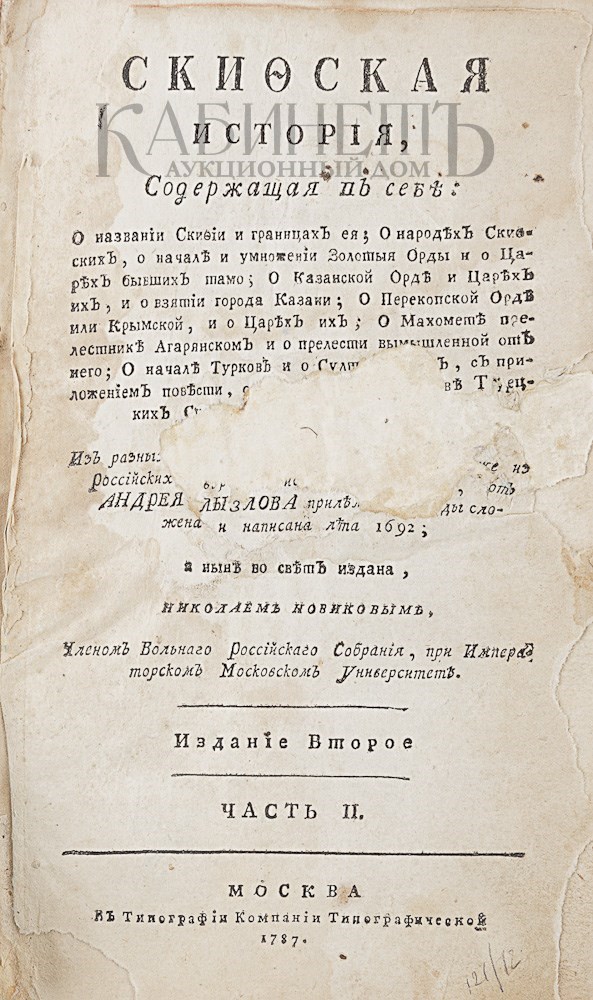 СКИѲСКАЯ
КАБИНЕТЪ
ИСТОРІЯ,
АУКЦИОННЫЙ ДОМ
Содержащая въ себѣ:
О названіи Скиѳіи и границахъ ея; О народѣхъ Скиѳ-
скихъ, о началѣ и умноженіи Золотыя Орды и о Ца-
рѣхъ бывшихъ тамо; О Казанской Ордѣ и Царѣхъ
ихъ, и о взятіи города Казани; О Перекопской Ордѣ
или Крымской, и о Царѣхъ ихъ; О Махометѣ пре-
лестникѣ Агарянскомъ и о прелести вымышленной отъ
него; О началѣ Турковъ и о , съ при-
ложеніемъ повѣсти,
кихъ
Изъ из
Россійскихъ отъ
АНДРЕЯ ЛЫЗЛОВА сло-
жена и написана лѣта 1692;
а нынѣ во свѣтъ издана,
НИКОЛАЕМЪ НОВИКОВЫМЪ,
Членомъ Вольнаго Россійскаго Собранія, при Импера-
торскомъ Московскомъ Университетѣ.
Изданіе Второе
ЧАСТЬ II.
МОСКВА
Въ Типографіи Компаніи Типографической
1787.